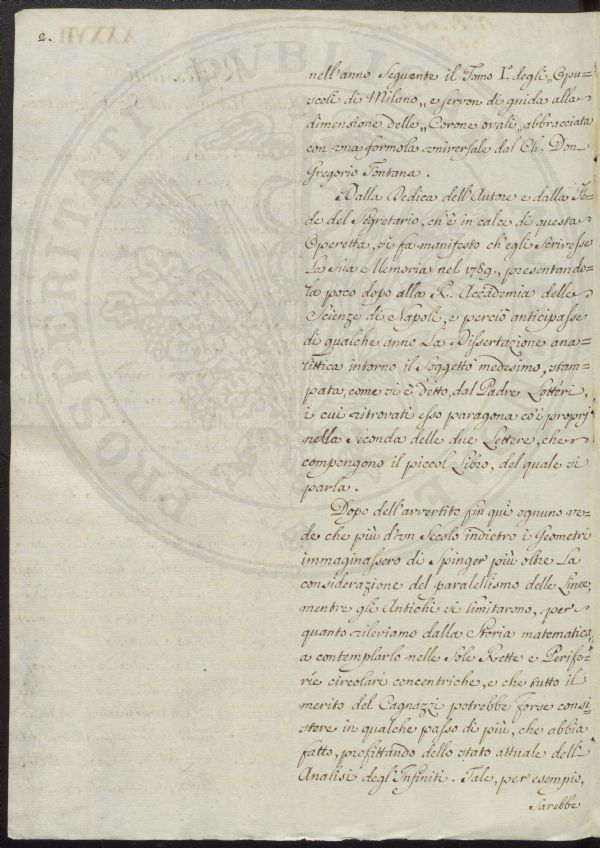 2.
nell'anno Seguente il Tomo I.° degli „Opu-
scoli di Milano„ e servon di guida alla
dimensione delle „Corone ovali„ abbracciata
con una formola universale dal Ch. Don
Gregorio Fontana.
Dalla Dedica dell'Autore e dalla Fe-
de del Segretario, ch'è in calce di questa
Operetta, si fa manifesto ch'egli Scrivesse
La Sua Memoria nel 1789., presentando-
la poco dopo alla R. Accademia delle
Scienze di Napoli, e perciò anticipasse
di qualche anno La Dissertazione ana-
littica intorno il Soggetto medesimo, stam-
pata, come si è detto, dal Padre Lotteri,
i cui ritrovati esso paragona co'i proprj
nella Seconda delle due Lettere, che
compongono il piccol Libro, del quale si
parla.
Dopo dell'avvertito fin quì ognuno ve-
de che più d'un Secolo indietro i Geometri
immaginassero di Spinger più oltre La
considerazione del paralellismo delle Linee,
mentre gli Antichi si limitarono, per
quanto rileviamo dalla Storia matematica,
a contemplarlo nelle Sole Rette e Perife-
rie circolari concentriche, e che tutto il
merito del Cagnazzi potrebbe forse consi-
stere in qualche passo di più, che abbia
fatto, profittando dello stato attuale dell'
Analisi degl'Infiniti. Tale, per esempio,
Sarebbe
PROSPERITATI